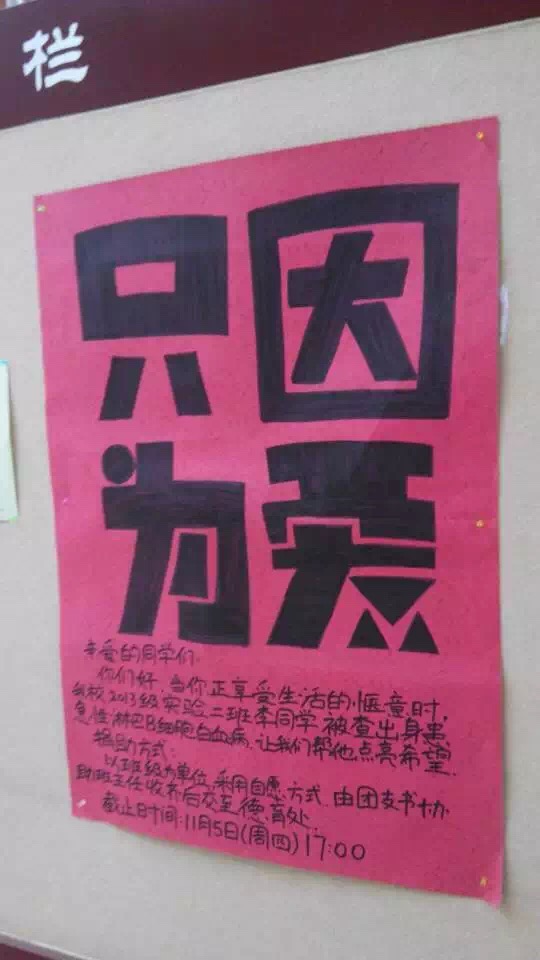 栏
只因
为爱
亲爱的同学们:
你们好,当你正享受生活的惬意时,
我校2013级实验二班李同学被查出身患
急性淋巴B细胞白血病,让我们帮他点亮希望.
捐助方式:
以班级为单位,采用自愿方式,由团支书协
助班主任收齐后交至德育处.
截止时间:11月5日(周四)17:00